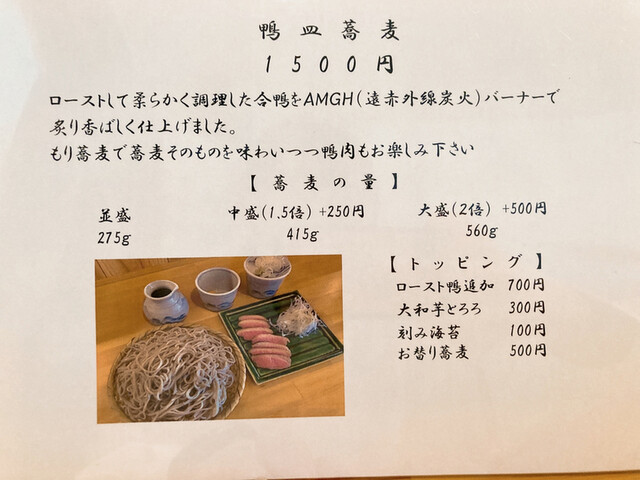 鴨皿蕎麦
1500円
ローストして柔らかく調理した合鴨をAMGH(遠赤外線炭火)バーナーで
炙り香ばしく仕上げました。
もり蕎麦で蕎麦そのものを味わいつつ鴨肉もお楽しみ下さい
【蕎麦の量】
並盛 中盛(1.5倍) +250円 大盛(2倍) +500円
275g 415g 560g
【トッピング】
ロースト鴨追加 700円
大和芋とろろ 300円
刻み海苔 100円
お替り蕎麦 500円